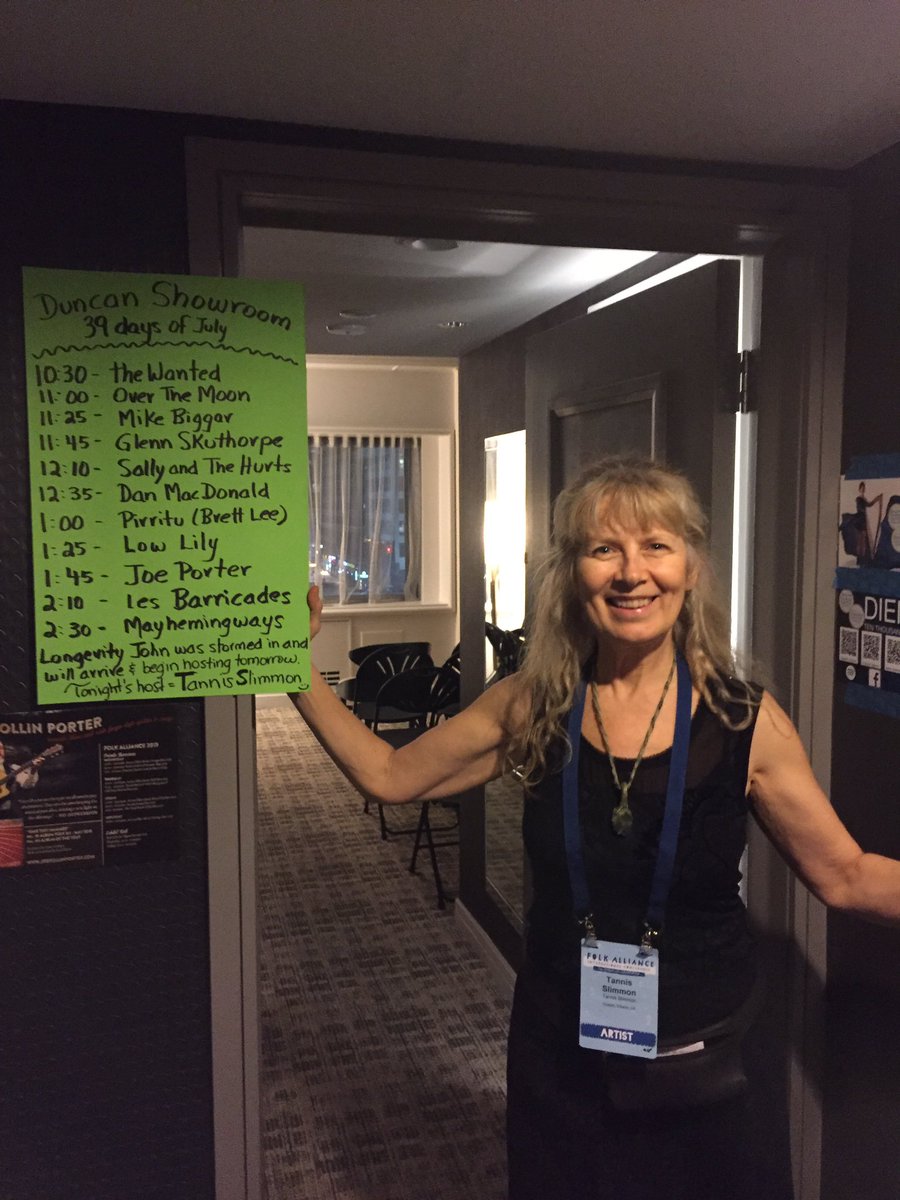 Duncan Showroom
39 days of July
10:30 - the Wanted
11:00 - Over The Moon
11:25 - Mike Biggar
11:45 - Glenn SKuthorpe
12:10 - Sally and The Hurts
12:35 - Dan MacDonald
1:00 - Pirritu (Brett Lee)
1:25 - Low Lily
1:45 - Joe Porter
2:10 - Les Barricades
2:30 - Mayhemingways
Longevity John was stormed in and
will arrive & begin hosting tomorrow.
Tonight's host = Tannis Slimmon
OLLIN PORTER
FOLK ALLIANCE 2019
FOLK ALLIANCE
Tannis
Slimmon
Tannis Slimmon
ARTIST
DIE
TEN THOUSAN